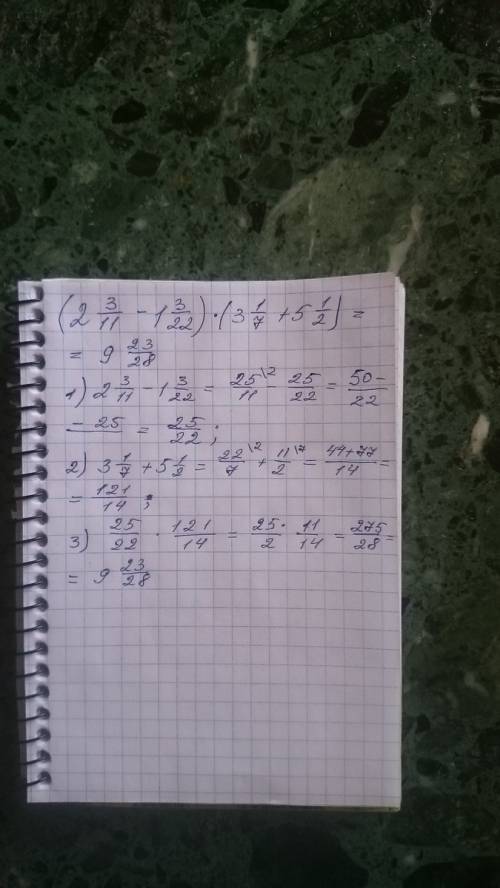 (2 3/11 - 1 3/22) · (3 1/7 + 5 1/2) =
= 9 23/28
1) 2 3/11 - 1 3/22 = 25\2/11 - 25/22 = 50-
- 25/22 = 25/22;
2) 3 1/7 + 5 1/2 = 22\2/7 + 11\7/2 = 44+77/14 =
= 121/14;
3) 25/22 · 121/14 = 25·11/2·14 = 275/28 =
= 9 23/28